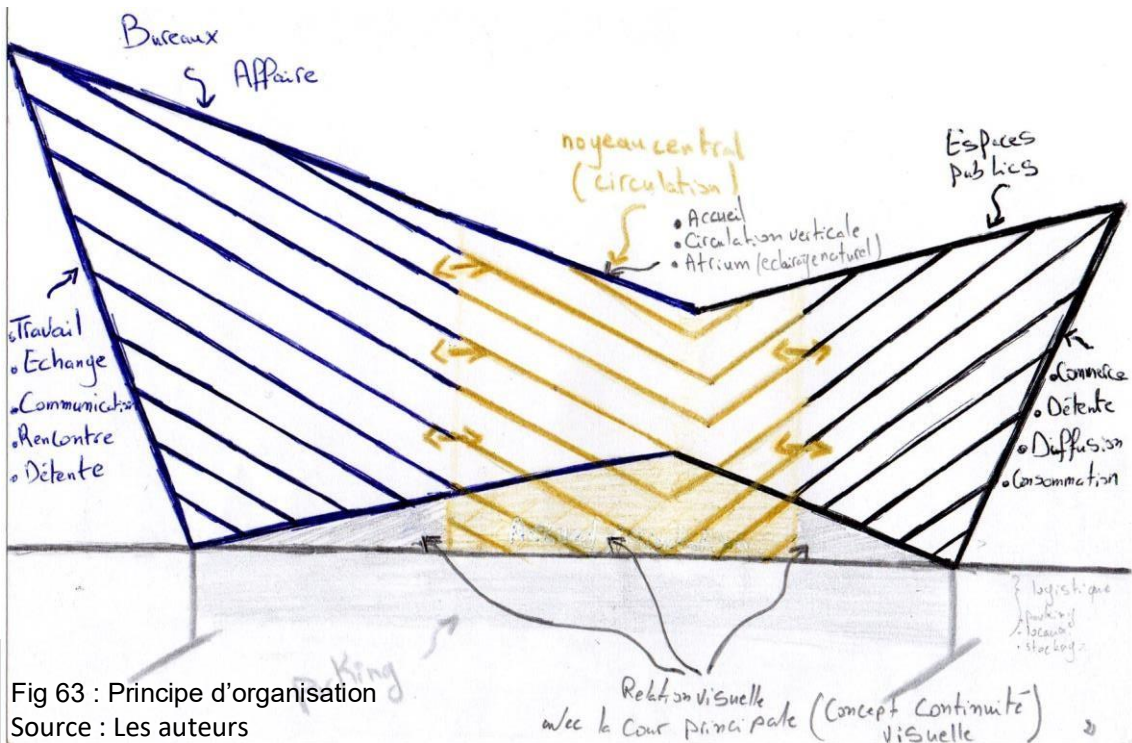 Bureaux
Affaire
noyeau central
(circulation)
• Accueil
• Circulation verticale
• Atrium (eclairage naturel)
Espaces
publics
• Travail
• Echange
• Communication
• Rencontre
• Détente
• Commerce
• Détente
• Diffusion
• Consommation
logistique
• parking
parking
Relation visuelle
avec la Cour principale (Concept Continuité
visuelle)
Fig 63 : Principe d'organisation
Source : Les auteurs